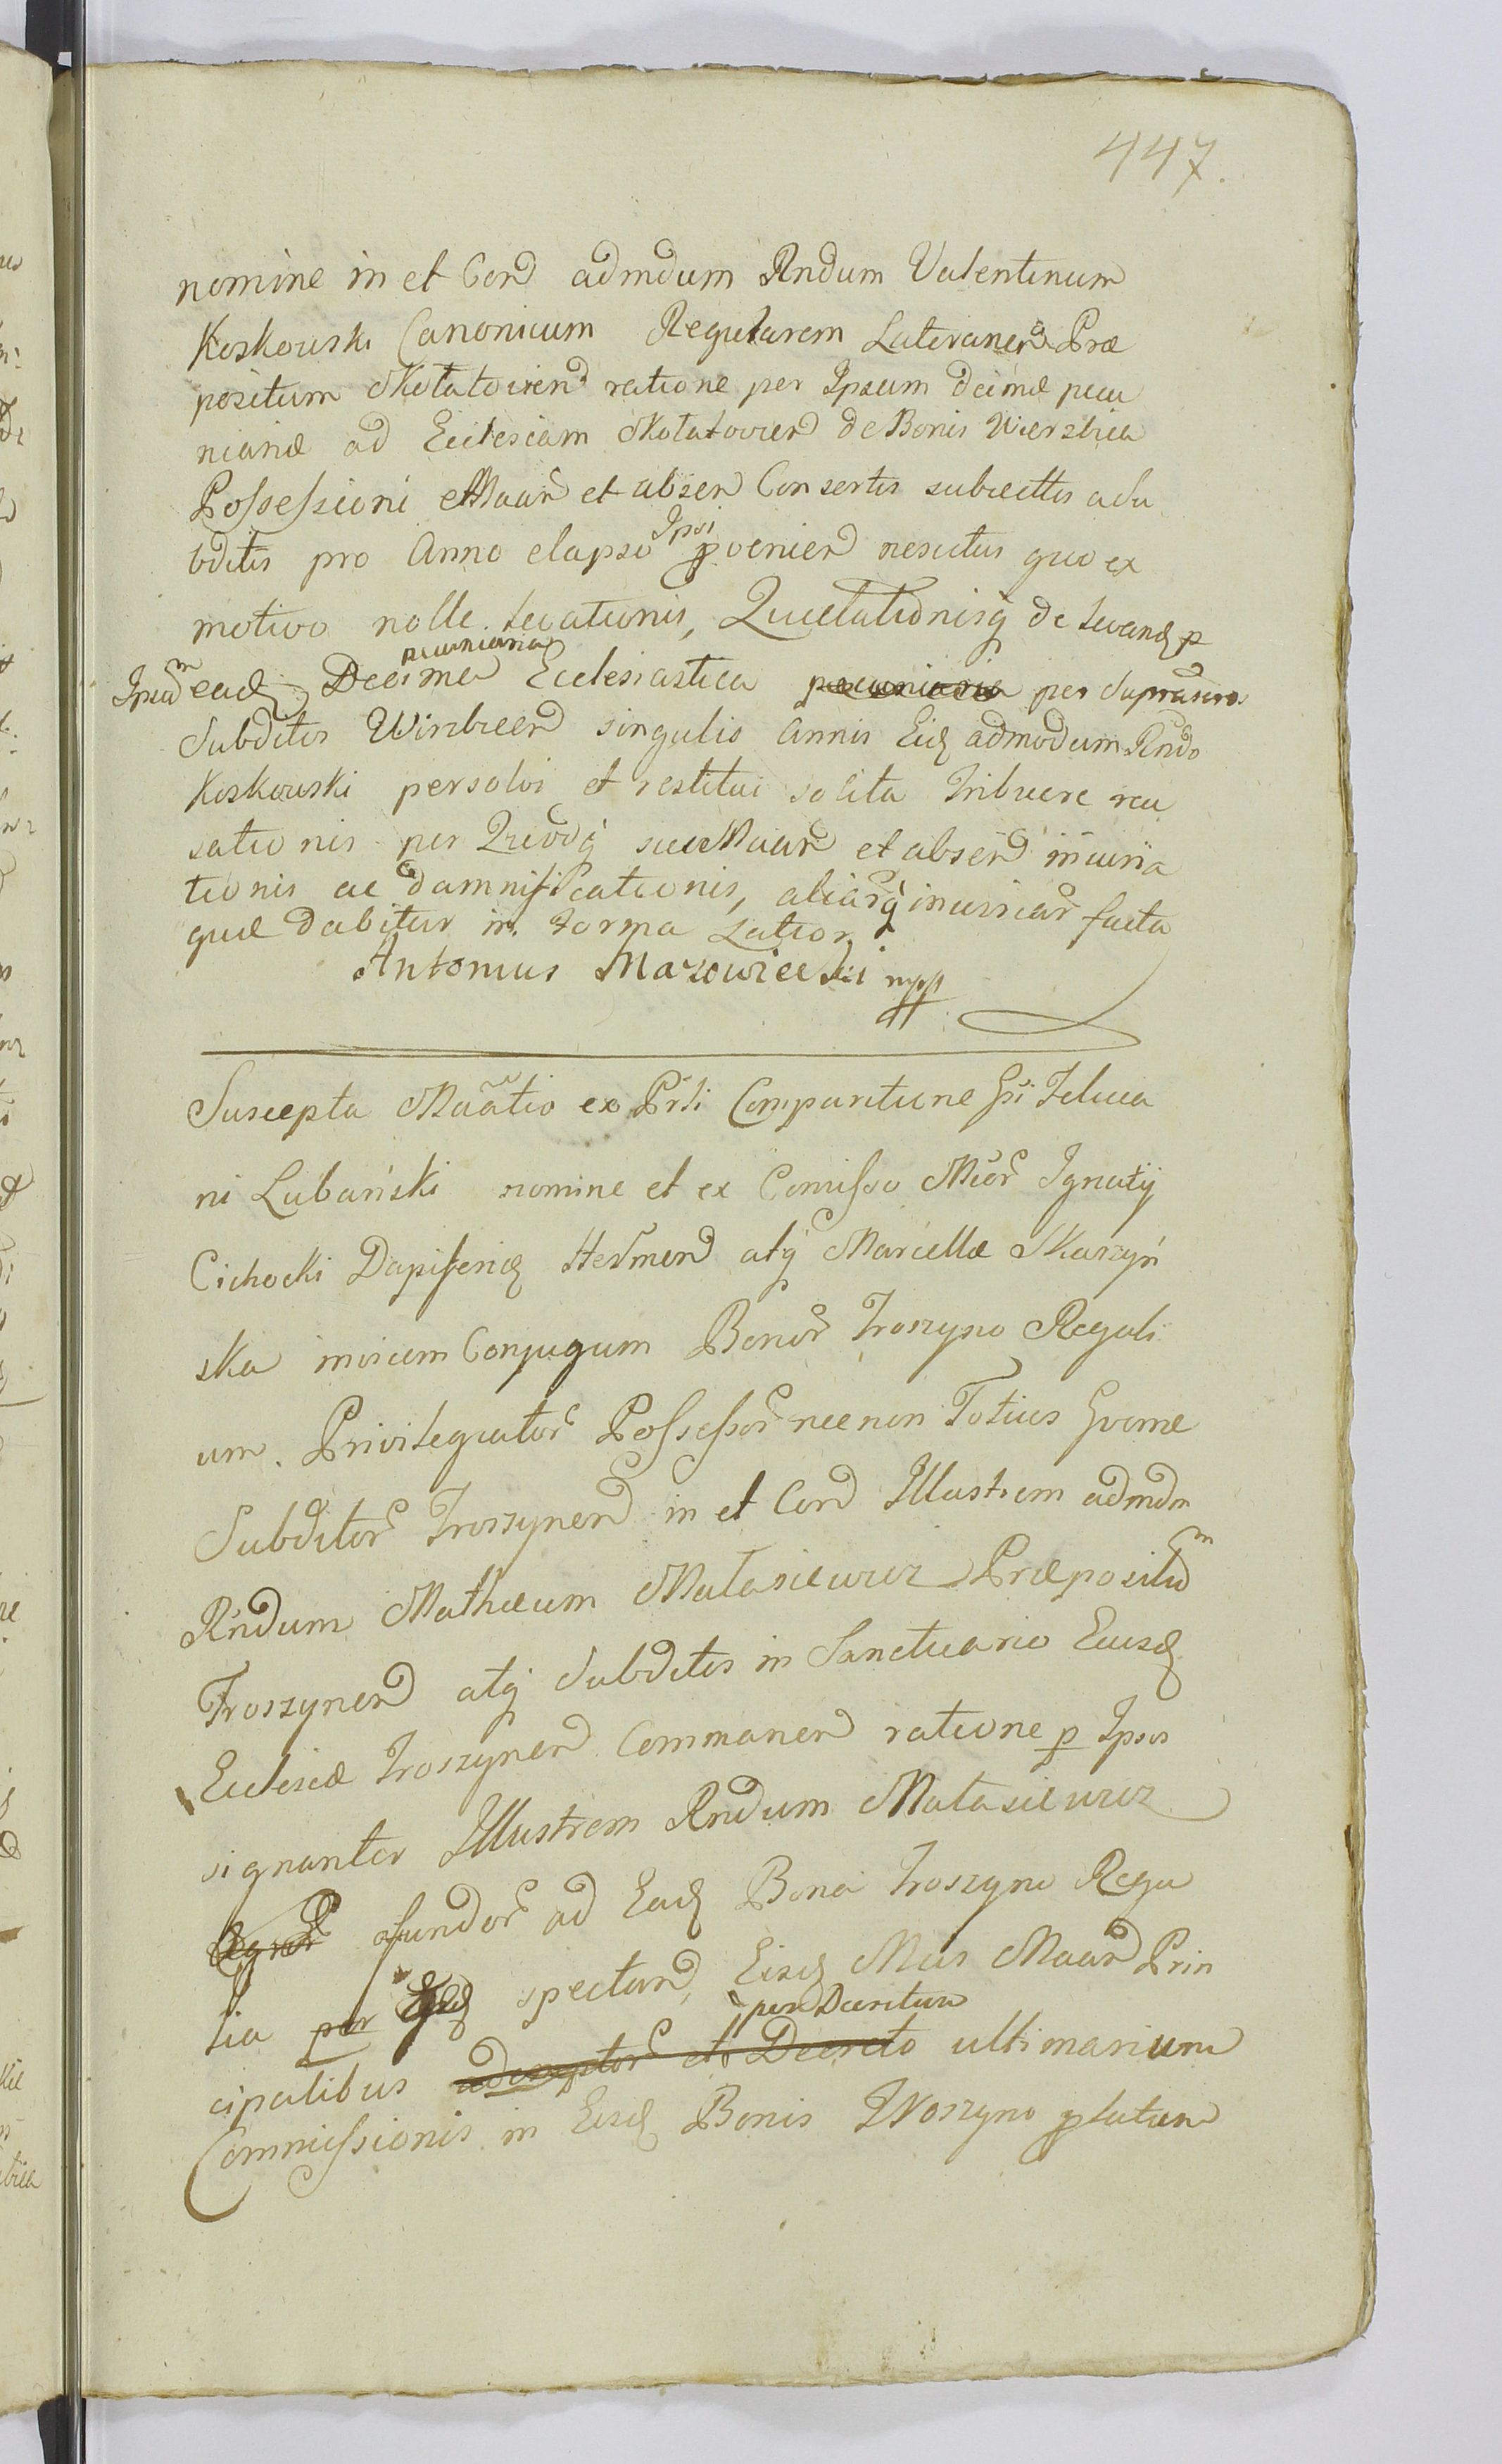 447.
nomine in et Con̄ admdum Rndum Valentinum
Koskowski Canonicum Regularem Lateranen̄ Præ
positum Mokotowien̄ ratione per Ipsum decimæ pecu
niariæ ad Ecclesiam de Bonis Wierzbica
Possessioni et absen Consortis subiectis a Su
bditis pro Anno elapso Ipsi pvenien nescitus quo ex
motivo nolle levationis, Quietationisq de levand p
Ipsum ead Decima pecuniaria Ecclesiastica pecuniaria per
Subditos singulis Annis Eid admodum Rndo
Koskowski persolvi et restitui solita Tribuere recu
sationis per Quodq suæ Maan̄ et absen̄ iniuria
tionis ac damnificationis, aliarq iniuriar facta
quæ dabitur in forma Latior
Antonius Mazowiecki mpp
Suscepta Maãtio ex Prsti Comparitione Gsi Felicia
ni Lubański nomine et ex Comisso Micor Ignatij
Cichocki Dapiferid atq Marcellæ Skarzyń
ska invicem Conjugum Bonor Troszyno Regali
um. Privilegiator Possessor necnon Totius Gromæ
Subditor Troszynen̄ in et Con̄ Illustrem admdm
Rńdum Mathæum Matasiewicz Præpositum
Troszynen̄ atq Subditos in Sanctuario Eiusd
Ecclesiæ Troszynen̄ Commanen̄ ratione p Ipsos
signanter Illustrem Rndum Matasiewicz
Agror fundor ad Ead Bona Troszyno Rega
lia per spectan̄, Eisd Mcis Maan̄ Prin
cipalibus adscriptor et Decreto per Decretum ultimarium
Commissionis in Eisd Bonis Troszyno platum